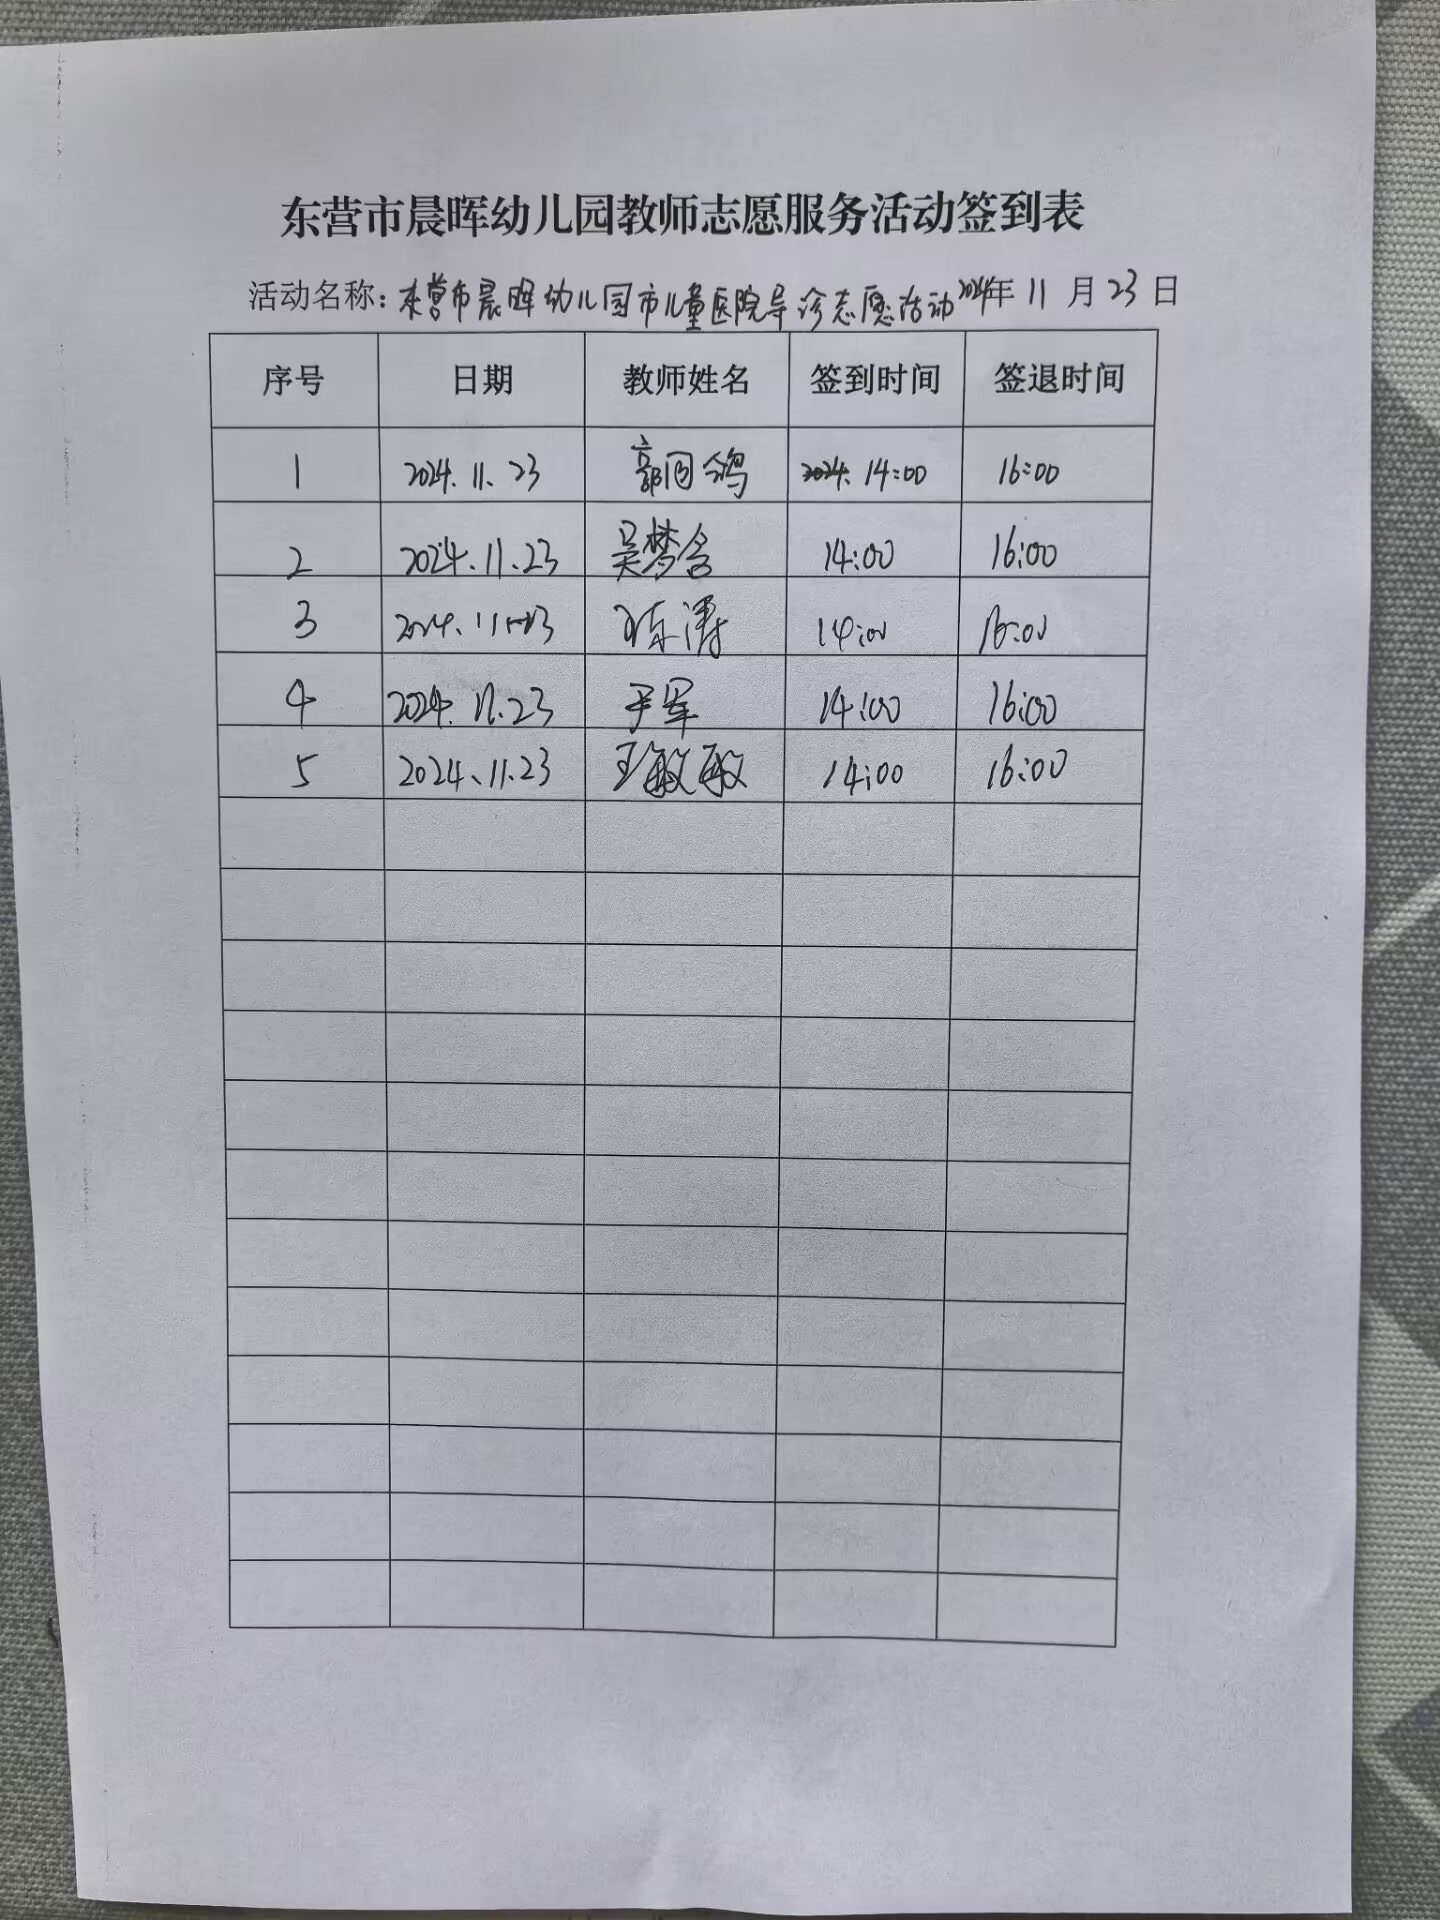 东营市晨晖幼儿园教师志愿服务活动签到表
活动名称：东营市晨晖幼儿园市儿童医院导诊志愿活动 2024年 11 月 23 日
序号 日期 教师姓名 签到时间 签退时间
1 2024.11.23 郭回鸽 14:00 16:00
2 2024.11.23 吴梦含 14:00 16:00
3 2024.11.23 陈涛 14:00 16:00
4 2024.11.23 于军 14:00 16:00
5 2024.11.23 王敏敏 14:00 16:00